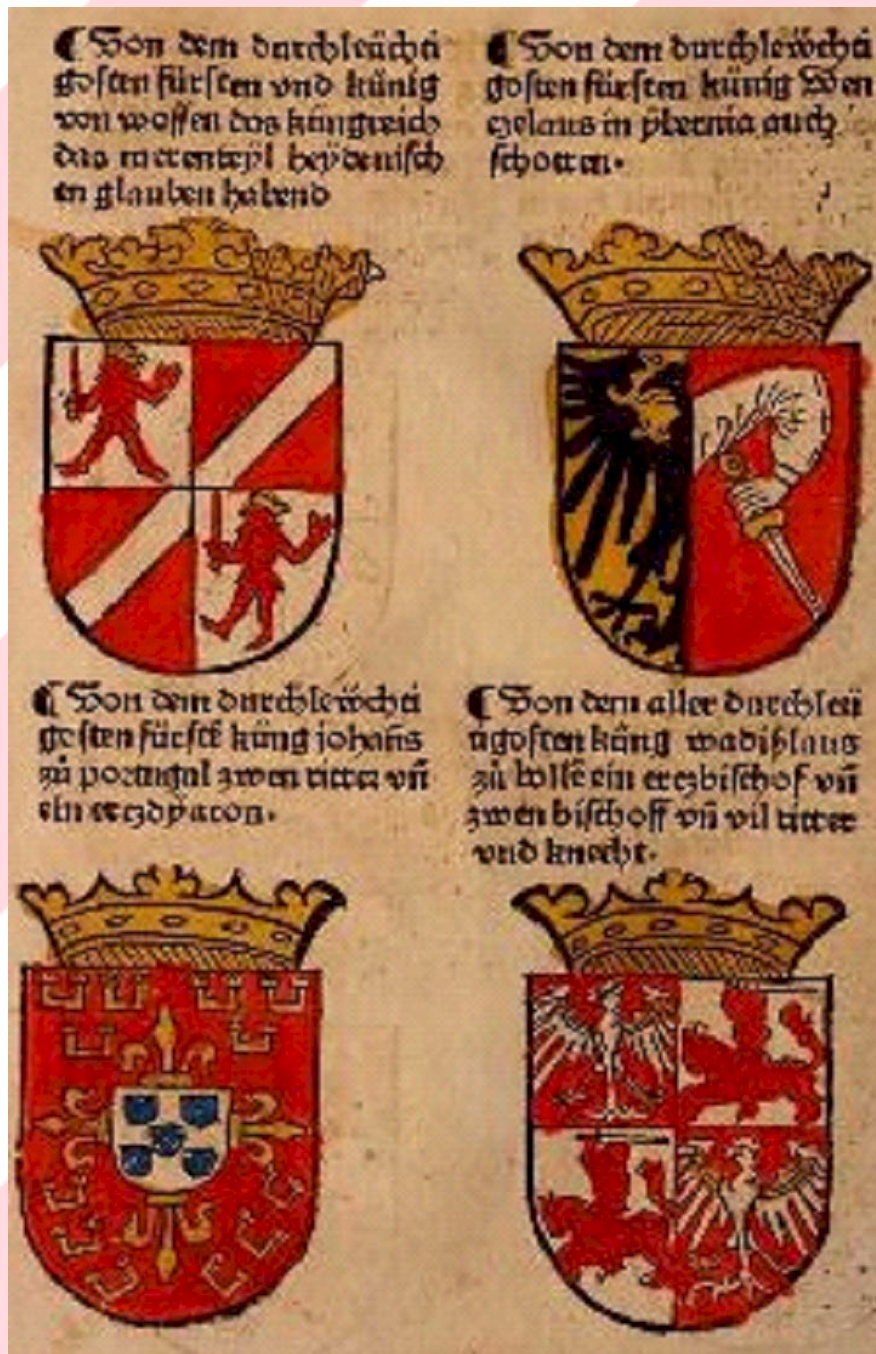 ¶ Von dem durchleüchti
gosten fürsten vnd künig
von wossen das küngreich
das merenteyl heydenisch
en glauben habend
¶ Von dem durchleüchti
gosten fürsten künig Wen
czelaus in ybernia auch
schotten.
¶ Von dem durchleüchti
gosten fürstē küng johañs
zů portugal zwen ritter vñ
ein erczdyacon.
¶ Von dem aller durchleü
tigosten küng wadißlaus
zů ein erczbischof vñ
zwen bischoff vñ vil ritter
vnd knecht.